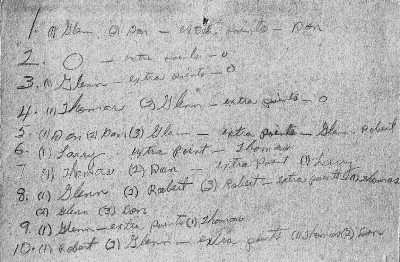 1. (1) Glen (2) Don - extra points - Don
2. 0 - extra points - 0
3. (1) Glenn - extra points - 0
4. (1) Thomas (2) Glenn - extra points - 0
5. (1) Don (2) Dan (3) Glenn - extra points - Glenn, Robert
6. (1) Larry extra point - Thomas
7. (1) Thomas (2) Dan - extra Point (1) Larry
8. (1) Glenn (2) Robert (3) Robert - extra points (1) Thomas
(2) Glenn (3) Don
9. (1) Glenn - extra points (1) Thomas
10. (1) Robert (2) Glenn - extra points (1) Thomas (2) Don